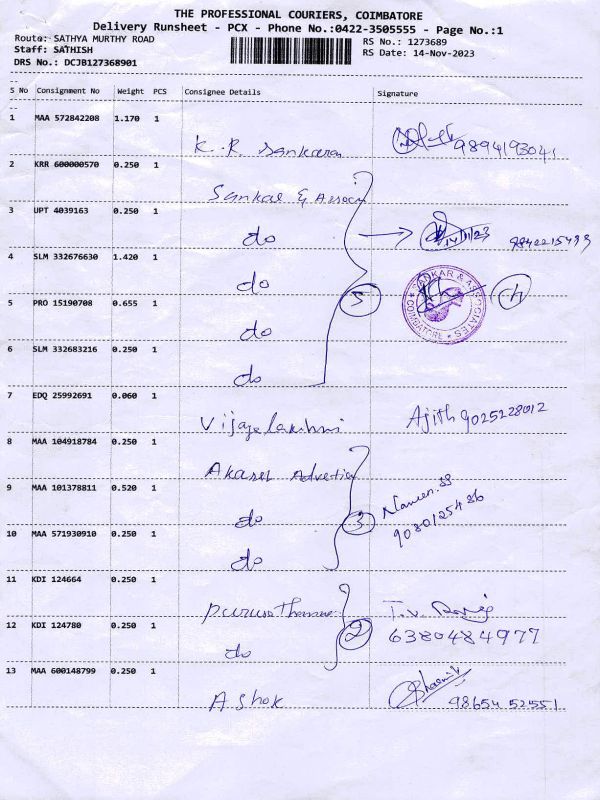 THE PROFESSIONAL COURIERS, COIMBATORE
Delivery Runsheet - PCX - Phone No.:0422-3505555 - Page No.:1
Route: SATHYA MURTHY ROAD
RS No.: 1273689
Staff: SATHISH
RS Date: 14-Nov-2023
DRS No.: DCJB127368901
S No Consignment No Weight PCS Consignee Details Signature
1 MAA 572842208 1.170 1
K.R. Sankaran 9894193041
2 KRR 600000570 0.250 1
Sankar & Associ
3 UPT 4039163 0.250 1
do 14/11/23 9842215493
4 SLM 332676630 1.420 1
do
SANKAR & ASSOCIATES
COIMBATORE
5 PRO 15190708 0.655 1
5
do
6 SLM 332683216 0.250 1
do
7 EDQ 25992691 0.060 1
Vijayalakshmi Ajith 9025228012
8 MAA 104918784 0.250 1
Akaser Advertis
9 MAA 101378811 0.520 1
do 3 9080125486
10 MAA 571930910 0.250 1
do
11 KDI 124664 0.250 1
T.V.
12 KDI 124780 0.250 1
2 6380484977
do
13 MAA 600148799 0.250 1
Ashok 9865452551